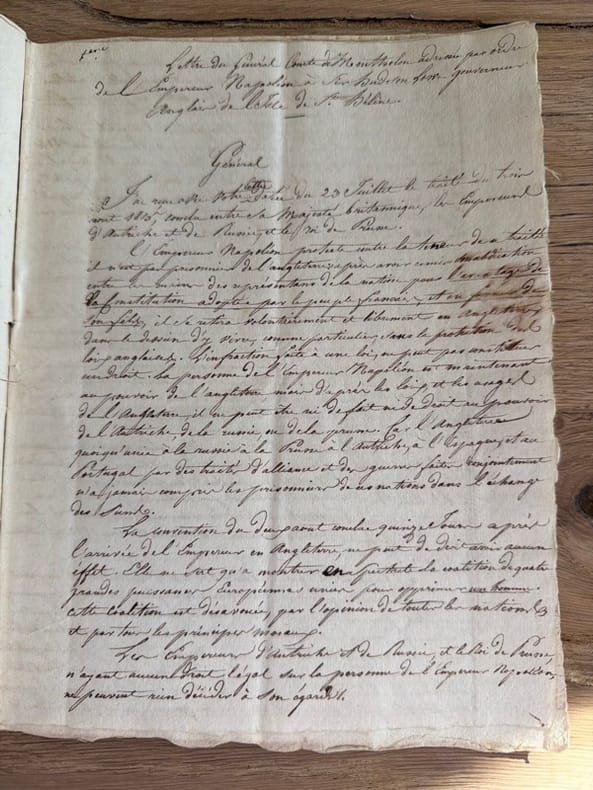 Lettre du Général Comte de Montholon adressée par ordre
de l'Empereur Napoléon à Sir Hudson Lowe Gouverneur
Anglais de l'Isle de Ste Hélène.
Général
J'ai reçu avec votre lettre datée du 23 Juillet le traité du trois
aout 1815, conclu entre Sa Majesté britannique, les Empereurs
d'Autriche et de Russie, et le Roi de Prusse.
L'Empereur Napoléon proteste contre la teneur de ce traité
il n'est pas prisonnier de l'angleterre, après avoir
entre les mains des représentans de la nation pour l'avantage de
la Constitution adoptée par le peuple francais, et en faveur de
son fils, il se retira volontierement et librement en Angleterre,
dans le dessein d'y vivre, comme particulier, sous la protection des
loix anglaises. L'infraction faite à une loi, ne peut pas constituer
un droit. La personne de l'Empereur Napoléon est maintenant
au pouvoir de l'angleterre, mais d'après les loix et les usages
de l'Angleterre, il ne peut être ni de fait ni de droit au pouvoir
de l'Autriche, de la russie, ou de la prusse. Car l'Angleterre
quoiqu'unie à la russie à la Prusse à l'Autriche, à l'Espagne, et au
Portugal par des traités d'alliance et des guerres faites conjointement
n'a jamais compris les prisonniers de ces nations dans l'échange
des
La convention du deux aout conclue quinze Jours après
l'arrivée de l'Empereur en Angleterre, ne peut de droit avoir aucun
effet. Elle ne sert qu'à montrer en la coalition de quatre
grandes puissances Européennes unies pour opprimer un homme.
cette coalition est désavouée, par l'opinion de toutes les nations
et par tous les principes moraux.
Les Empereurs d'Autriche et de Russie, et le Roi de Prusse,
n'ayant aucun droit légal sur la personne de l'Empereur Napoléon,
ne peuvent rien décider à son égard.